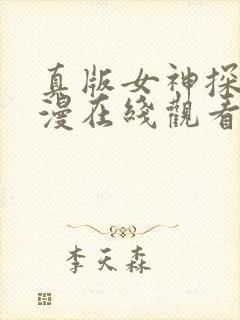 真版女神探
漫在线觀看
李天森